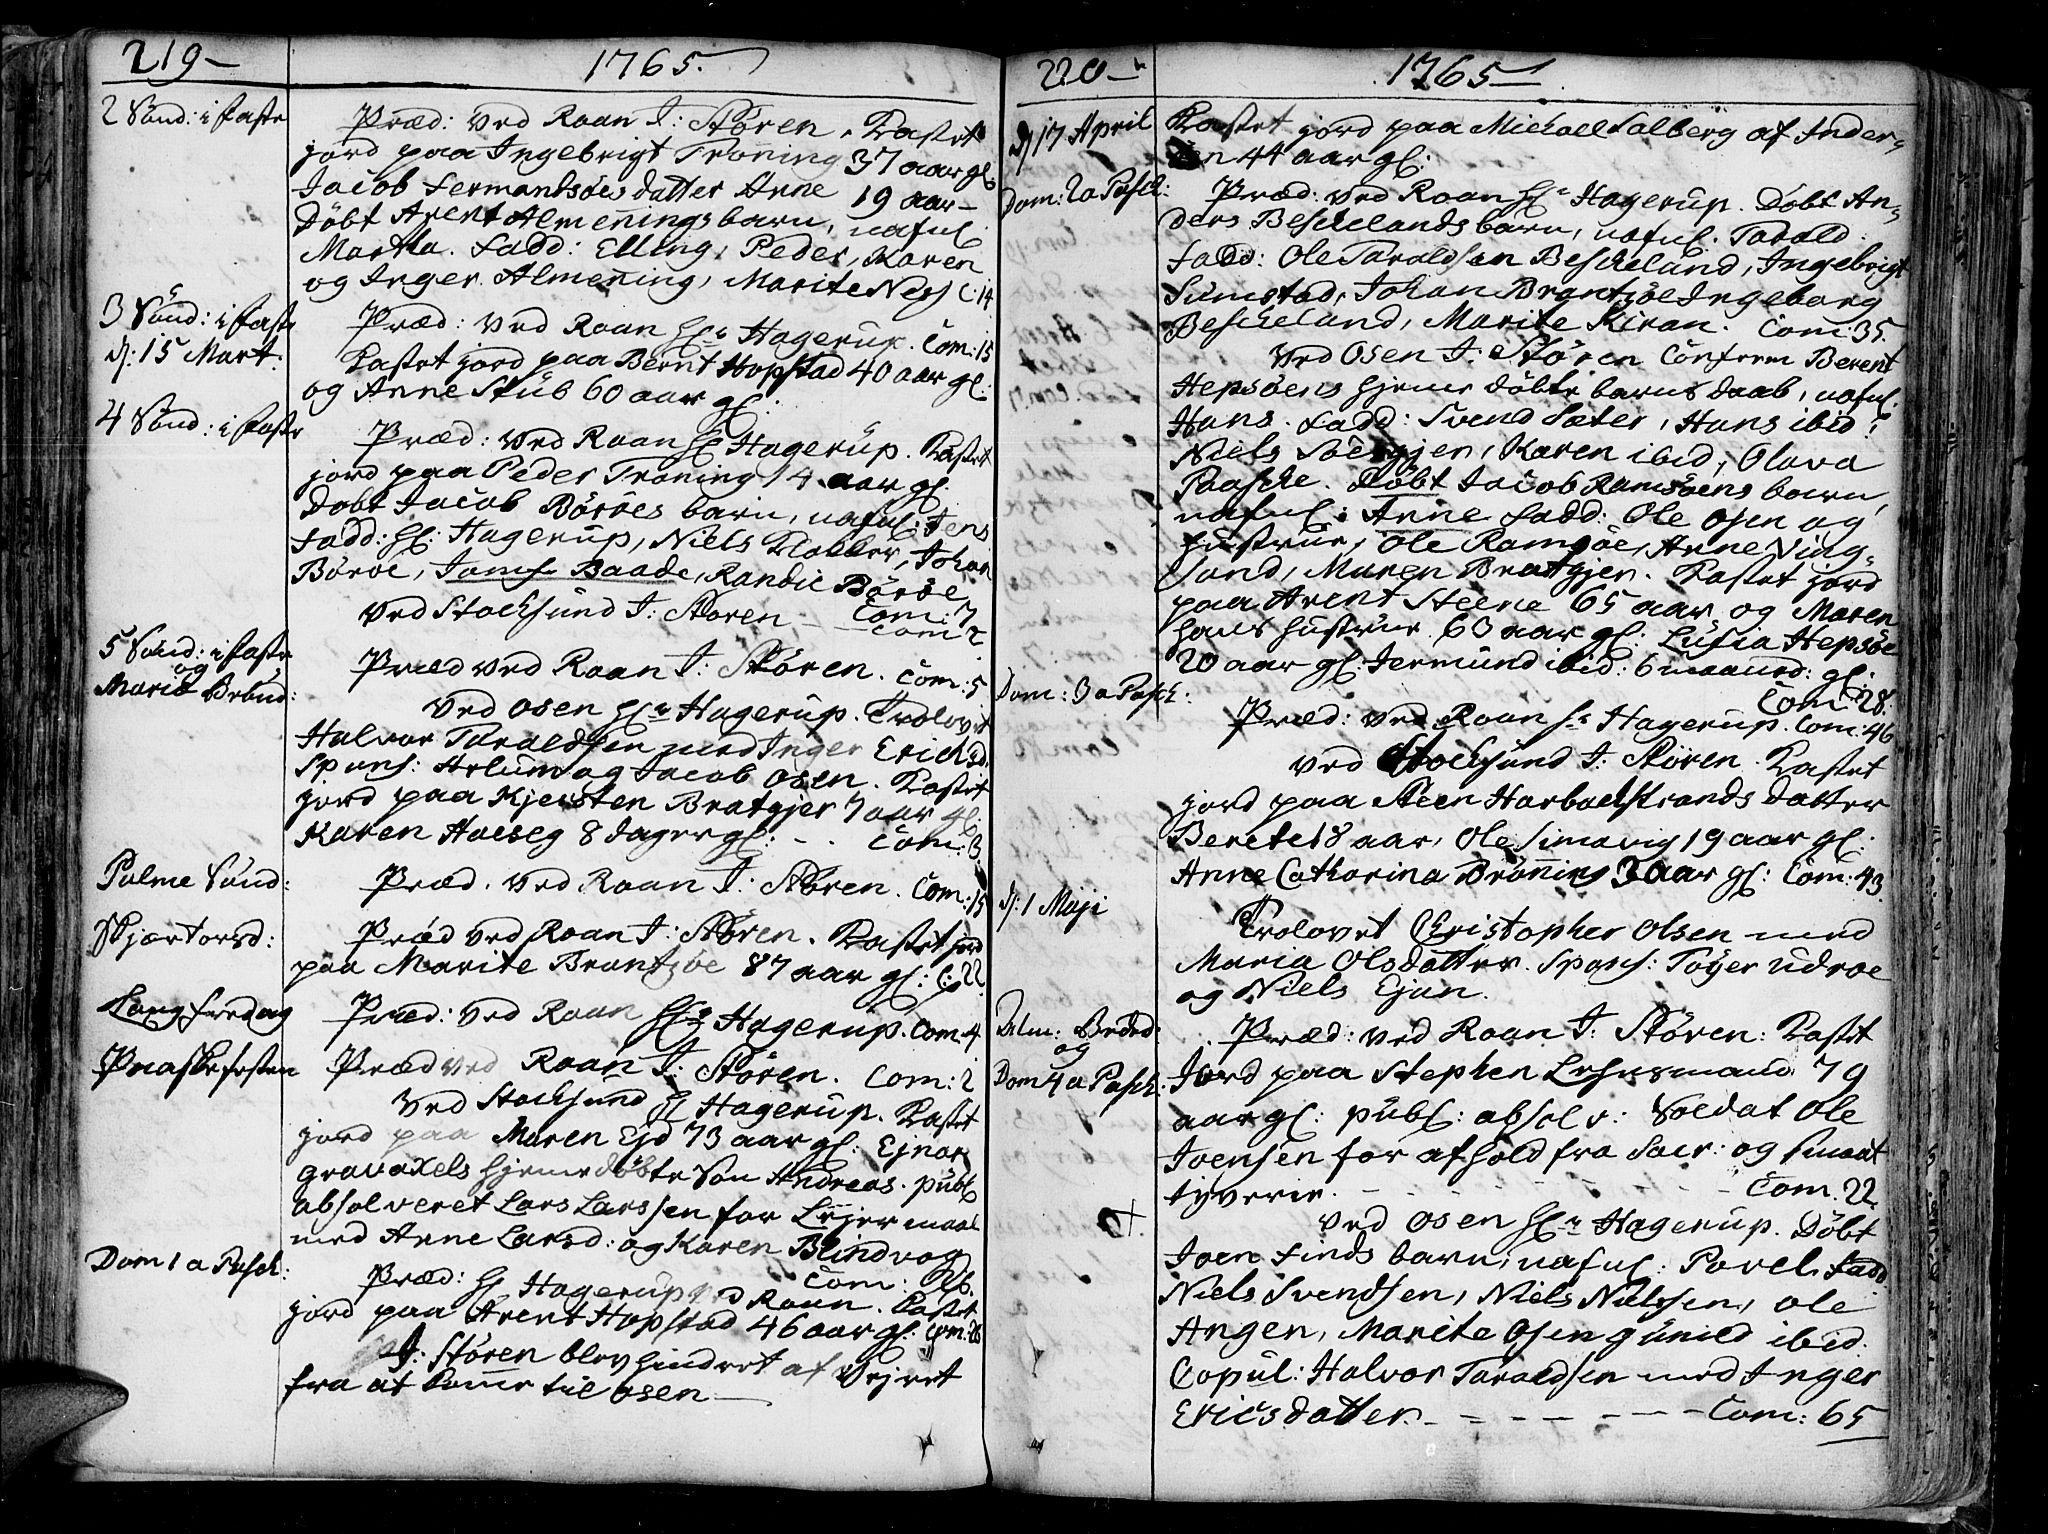 219 –
1765.
2 Sønd: i Faste
Præd: ved Roan J: Støren. Kastet
jord paa Ingebrigt Troning 37 aar gl.
Jacob Fermandsøes datter Anne 19 aar –
Døbt Arent Almenings barn, nafnl.
Martha. Fadd: Elling, Peder, Karen
og Inger Almening, Marite Næs C: 14
3 Sønd: i Faste
Præd: ved Roan Hr Hagerup. Com: 15
d: 15 Mart:
Kastet jord paa Bernt Hopstad 40 aar gl:
og Anne Stub 60 aar gl:
4 Sønd: i Faste
Præd: ved Roan Hr Hagerup. Kastet
jord paa Peder Troning 14 aar gl.
Døbt Jacob Børøes barn, nafnl: Jens
Fadd: Hr: Hagerup, Niels Klokker, Johan
Børøe, Jomf. Baade, Randie Børøe
Com: 7
ved Stocksund J: Støren – – Com 2
5 Sønd: i Faste
og
Mariæ Bebud:
Præd ved Roan J: Støren. Com: 5
ved Osen Hr Hagerup. Trolovet
Halvor Taraldsen med Inger Ericsd.
Spons: Arlum og Jacob Osen. Kastet
jord paa Kjersten Bratgjer 7 aar gl.
Karen Hoeseg 8 dager gl: - . Com: 3
Palme Sønd:
Præd. ved Roan J: Støren. Com: 15
Skjærtorsd:
Præd ved Roan J: Støren. Kastet jord
paa Marite Brantzøe 87 aar gl: C: 22
Langfredag
Præd: ved Roan Hr Hagerup. Com: 4
Paaskefesten
Præd ved Roan J: Støren. Com: 2
ved Stocksund Hr Hagerup. Kastet
jord paa Maren Ejd 73 aar gl: Ejnar
Gravaxels hjemedøbte Søn Andreas. publ
absolveret Lars Larssen for Lejermaal
med Anne Larsd: og Karen Blindvog
Com:
Dom 1 a Pasch:
Præd: Hr Hagerup ved Roan. Kastet
jord paa Arent Hopstad 46 aar gl. Com: 28
J: Støren blev hindret af Vejret
fra at komme til Osen –
220 –
1765 –
d 17 April
Kastet jord paa Michael Salberg af Inder-
øen 44 aar gl:
Dom: 2 a Pasch:
Præd: ved Roan Hr Hagerup. Døbt An-
ders Beschelands barn, nafnl. Tarald
Fadd: Ole Taraldsen Bescheland, Ingebrigt
Sumstad, Johan Brantzøe Ingeborg
Bescheland, Marite Kiran. Com: 35.
ved Osen J: Støren Conferm Berent
Hepsøens hjeme døbte barns daab, nafnl.
Hans. Fadd: Svend Sæter, Hans ibid:
Niels Sørgjer, Karen ibid, Olava
Paasche. Døbt Jacob Ramsøens barn
nafnl: Anne Fadd: Ole Osen og
hustrue, Ole Ramsøe, Anne Ving-
sand, Maren Bratgjer. Kastet jord
paa Arent Steene 65 aar og Maren
hans hustrue 63 aar gl. Lusia Hepsøe
20 aar gl Jermund ibid: 6 maaned: gl:
Com: 28.
Dom: 3 a Pasch:
Præd: ved Roan Hr Hagerup. Com: 46
ved Stocksund J: Støren. Kastet
jord paa Steen Harbachstrands datter
Berete 18 aar, Ole Simavig 19 aar gl:
Anne Catharina Brøning 3 aar gl: Com: 43
d: 1 Maji
Trolovet Christopher Olsen med
Maria Olsdatter. Spons: Tøger Udroe
og Niels Ejan.
Alm: Beded:
og
Dom 4 a Pasch:
Præd: ved Roan J: Støren: Kastet
Jord paa Stephen Lehnsmand 79
aar gl: publ: absolv: Soldat Ole
Joensen for afhold fra Sacr: og smaat
tyverie. – – – – – – – Com. 22
ved Osen Hr Hagerup. Døbt
Joen Finds barn, nafnl: Povel. Fadd
Niels Svendsen, Niels Nielssen, Ole
Angen, Marite Osen Gunild ibid.
Copul: Halvor Taraldsen med Inger
Ericsdatter. – – – – – – – Com: 65